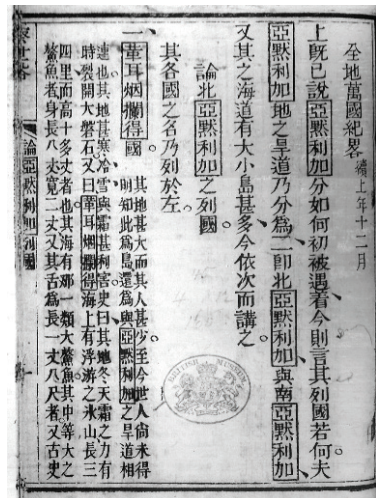 全地萬國紀畧 續上年十二月
上既已說亞默利加分如何初被遇着今則言其列國若何夫
亞默利加地之旱道乃分為二卽北亞默利加與南亞默利加
又其之海道有大小島甚多今依次而講之
論北亞默利加之列國
其各國之名乃列於左
一葦耳烟爛得國 其地甚大而其人甚少至今世人尚未得
明知此為島還為與亞默利加之旱道相
連也其地甚寒冷雪與霜甚利害史曰其地冬天霜之力有
時裂開大磐石又曰葦耳烟爛得海上有浮游之氷山長三
四里而高十多丈者也其海有那一類大鰲魚其中等大之
鰲魚者身長八丈寬二丈又其古為長一丈八尺者又古史
論亞默利加列國
BRITISH MUSEUM